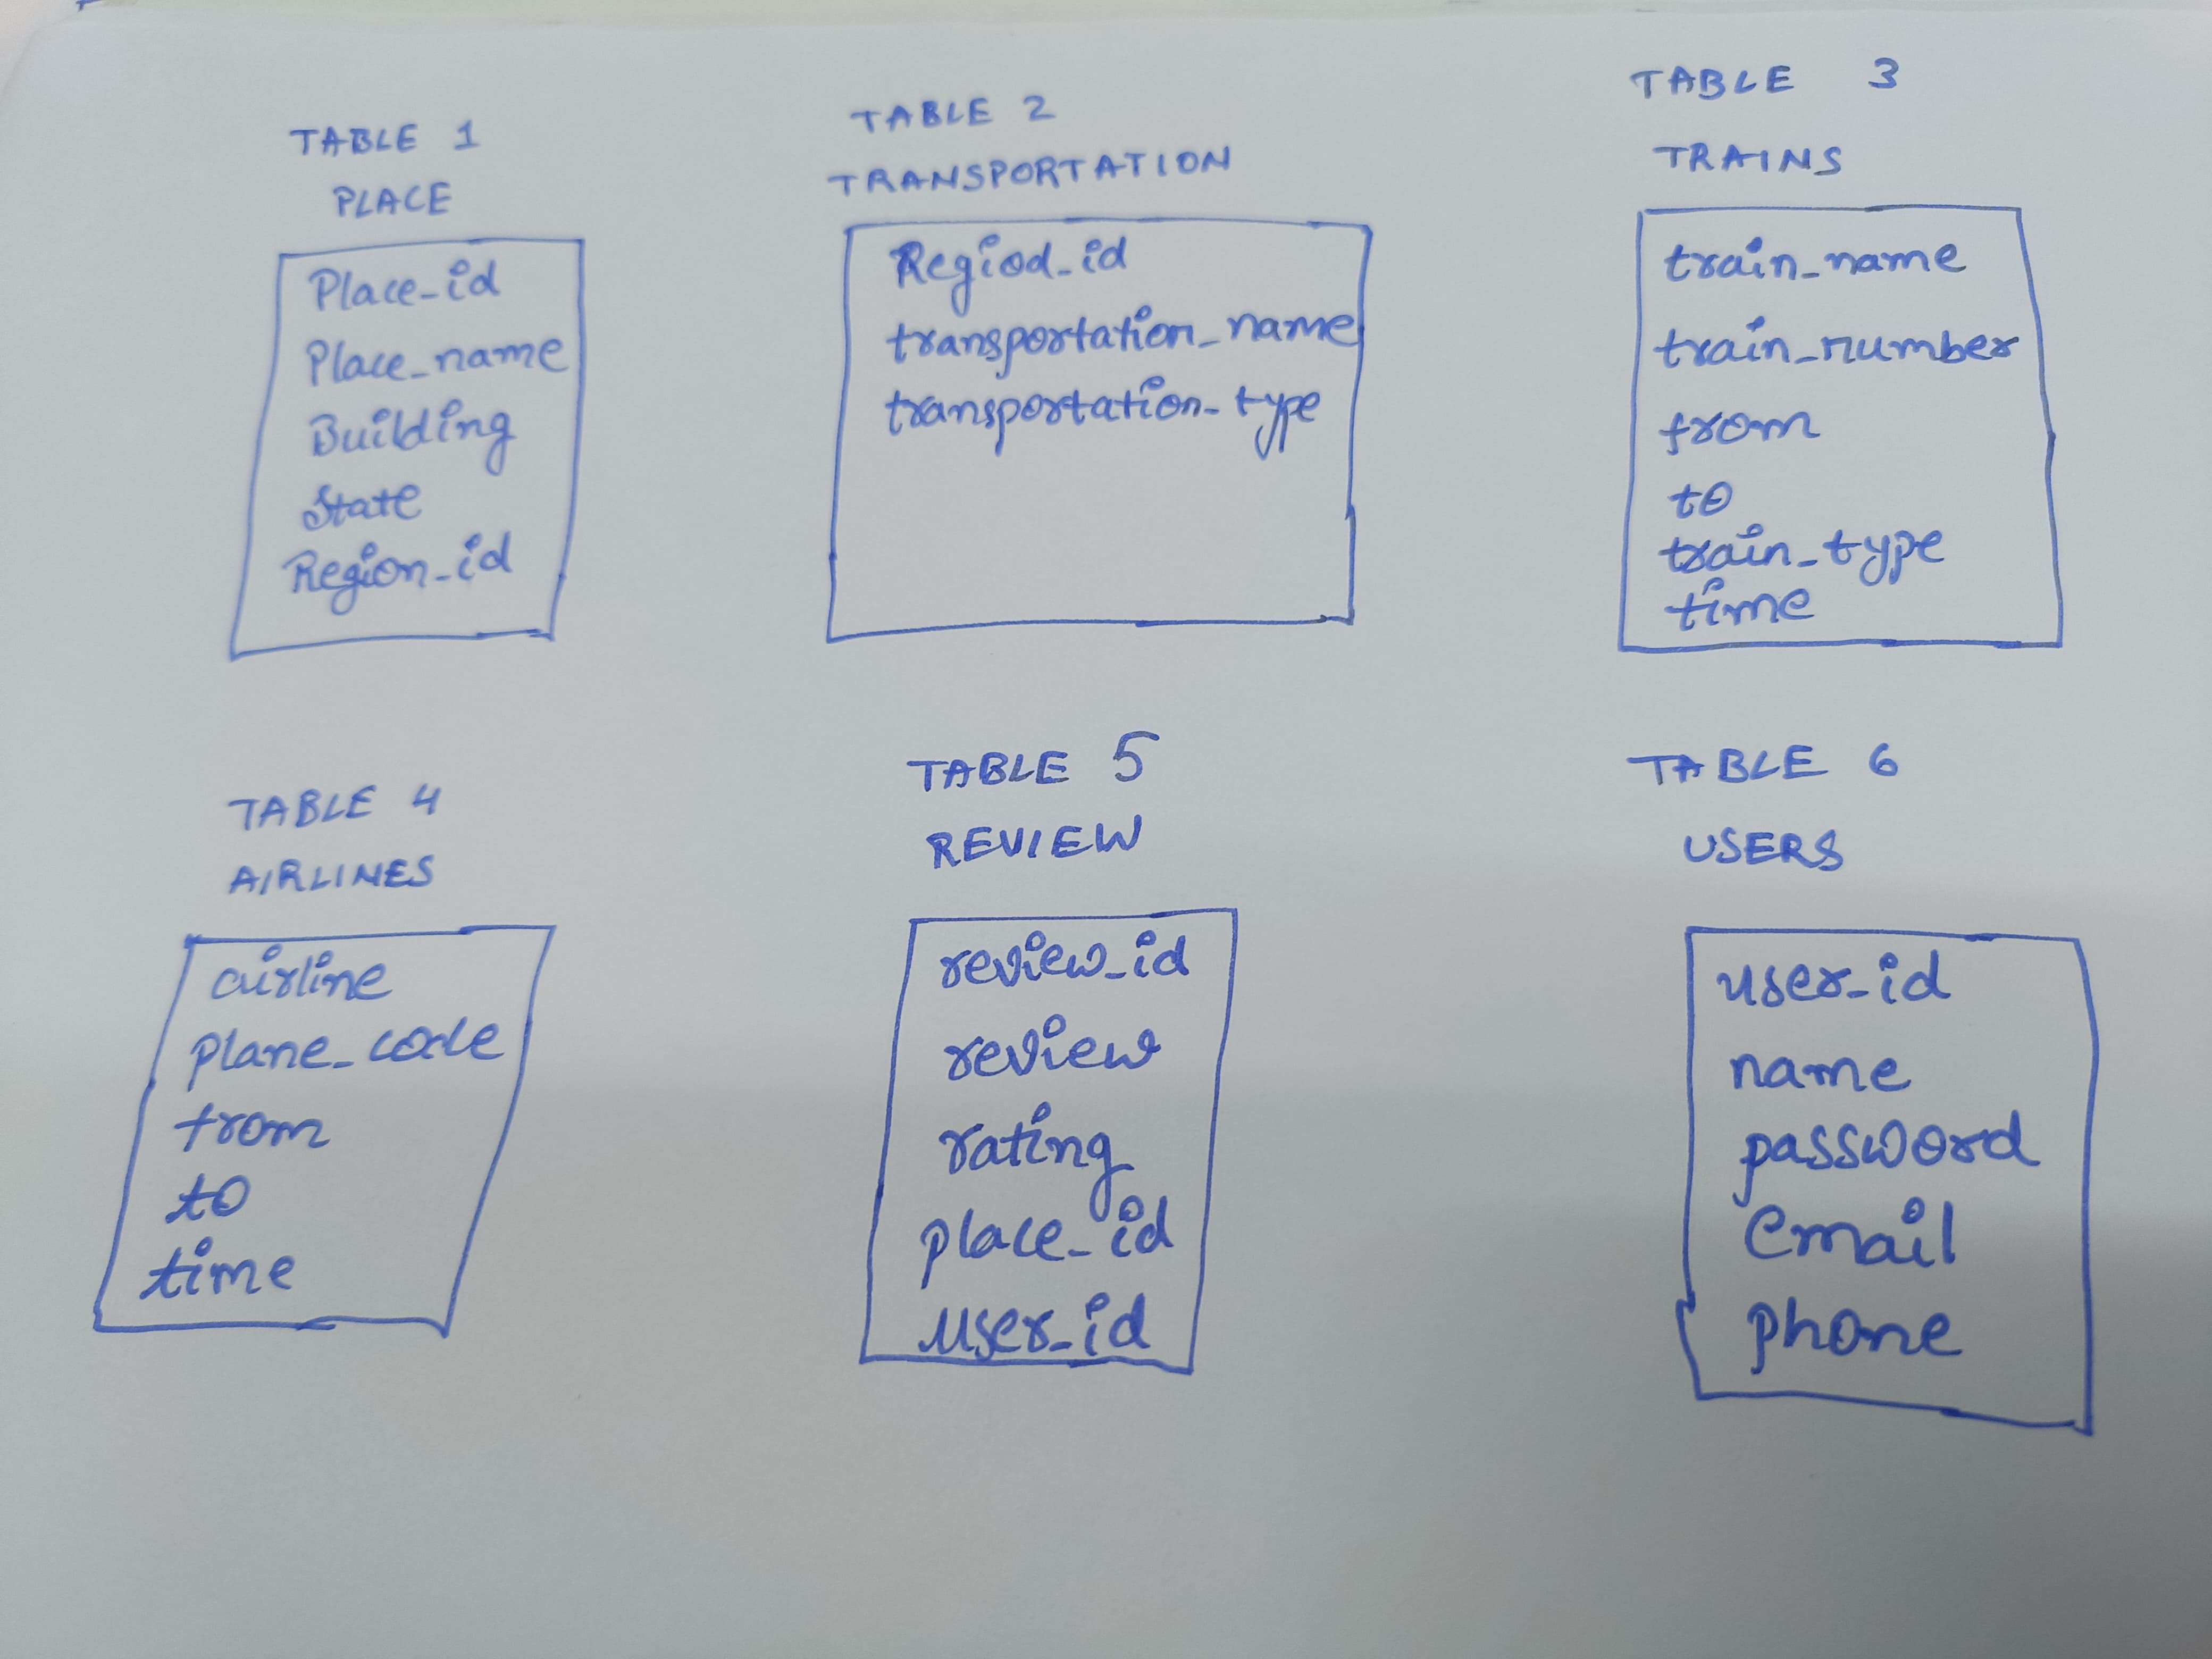 TABLE 1
PLACE
Place_id
Place_name
Building
State
Region_id
TABLE 2
TRANSPORTATION
Regiod_id
transportation_name
transportation_type
TABLE 3
TRAINS
train_name
train_number
from
to
train_type
time
TABLE 4
AIRLINES
airline
plane_code
from
to
time
TABLE 5
REVIEW
review_id
review
rating
place_id
user_id
TABLE 6
USERS
user_id
name
password
email
phone